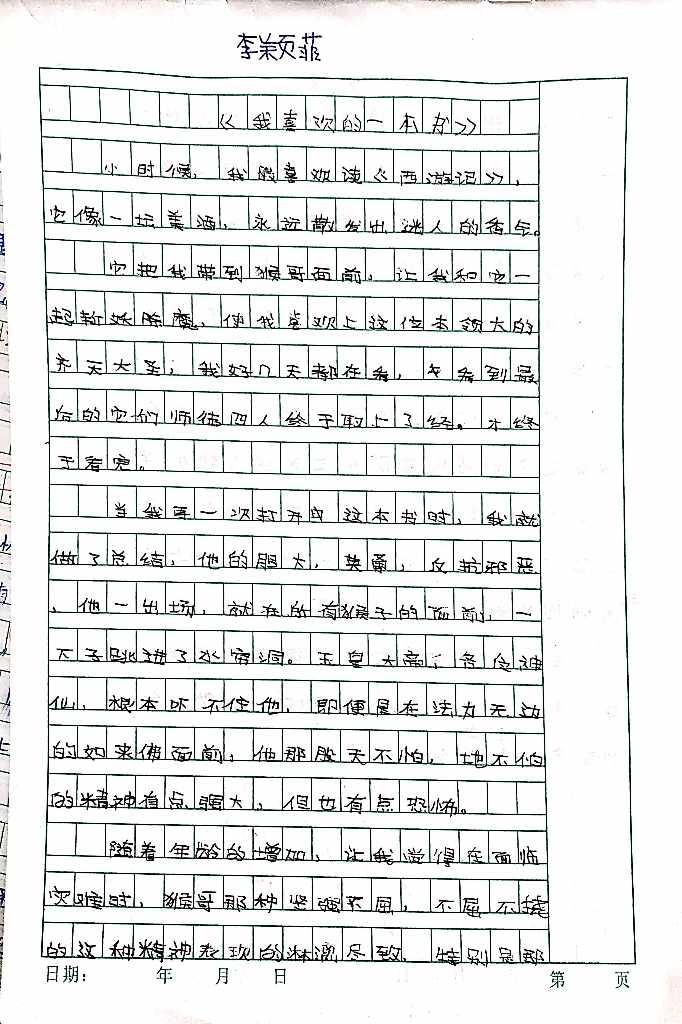 李颖菲
《我喜欢的一本书》
小时候，我最喜欢读《西游记》，
它像一坛美酒，永远散发出迷人的香气。
它把我带到猴哥面前，让我和它一
起斩妖除魔，使我喜欢上这位本领大的
齐天大圣，我好几天都在看，才看到最
后的它们师徒四人终于取上了经。才终
于看完。
当我再一次打开这本书时，我就
做了总结，他的胆大，英勇，反抗邪恶
，他一出场，就在所有猴子的面前，一
下子跳进了水帘洞。玉皇大帝，各位神
仙，根本吓不住他，即便是在法力无边
的如来佛面前，他那股天不怕，地不怕
的精神有点强大，但也有点恐怖。
随着年龄的增加，让我觉得在面临
灾难时，猴哥那种坚强不屈，不屈不挠
的这种精神表现的淋漓尽致，特别是那
日期： 年 月 日 第 页